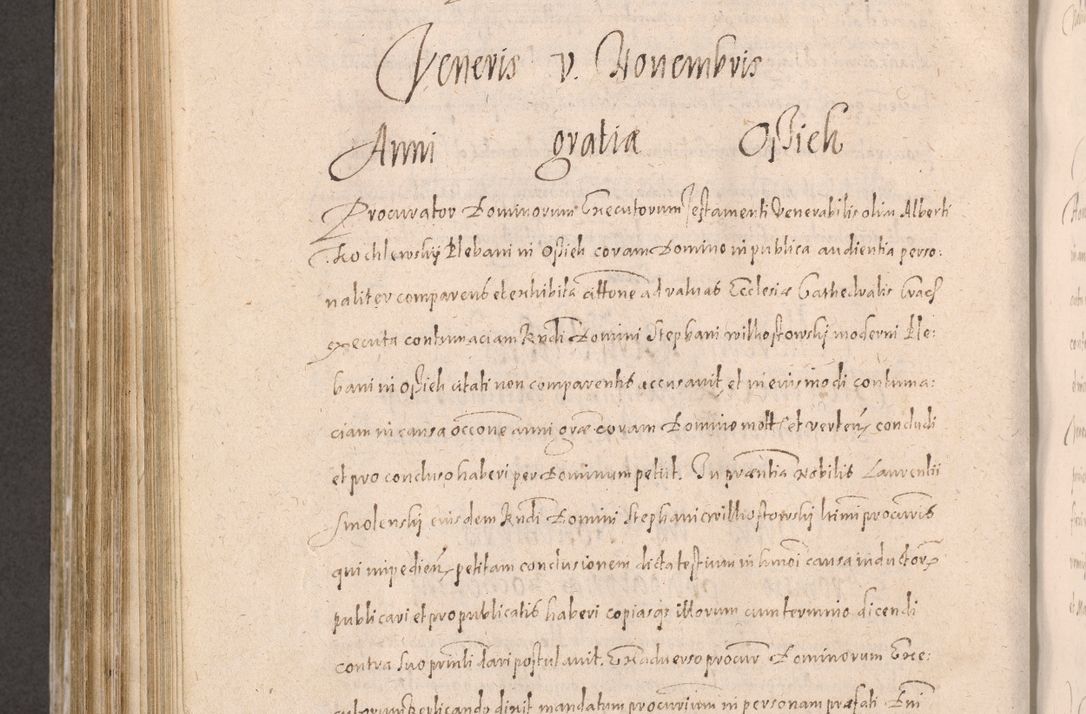 Veneris v. Nouembris
Anni gratiæ Oſſieh
Procurator Dominorum Executorum Testamenti Venerabilis olim Alberti
Kochlewskij Plebani in Oſſieh coram Domino in publica audientia perso:
naliter comparens et exhibita cittone ad valuas Ecclesiæ Cathedralis Crac
executa contumaciam Rndi Domini Stephani wilkostowskj moderni Ple:
bani in Oſſieh citati non comparentis accusauit, et in eius modi contuma:
ciam in causa occone anni græ coram Domino mott et verten concludi
et pro concluso haberi per Dominum petiit. In præntia Nobilis Laurentii
Smolenskj eiusdem Rndi Domini Stephani willkostowskj ltimi procuris
qui impedien petitam conclusionem dicta testium in hmoi causa inductor
publicari et pro publicatis haberi copiasq illorum cum termino dicendi
contra suo prinli dari postulauit. Ex aduerso procur Dominorum Exe:
cutorum Replicando dixit mandatum procurium in personam præfati Dni